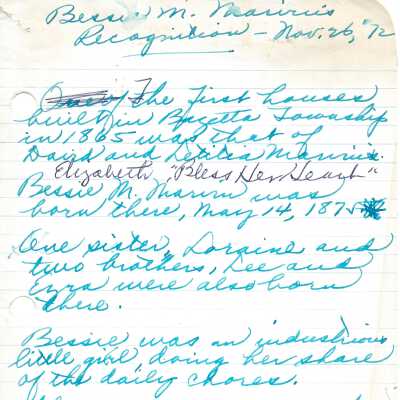 Bessie M. Marvin's
Recognition - Nov. 26, '72
One of The first houses
built in Bazetta Township
in 1865 was that of
David and Letitia Marvin.
Elizabeth, "Bless Her Heart"
Bessie M. Marvin was
born there, May 14, 1875
One sister, Loraine and
two brothers, Lee and
Ezra were also born
there.
Bessie was an industrious
little girl, doing her share
of the daily chores.